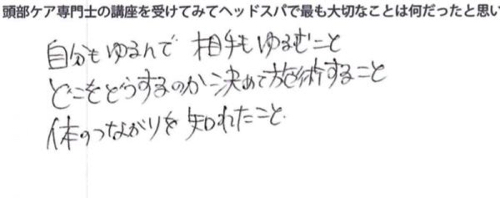 頭部ケア専門士の講座を受けてみてヘッドスパで最も大切なことは何だったと思い
自分もゆるんで 相手もゆるむこと
どこをどうするのか決めて施術すること
体のつながりを知れたこと